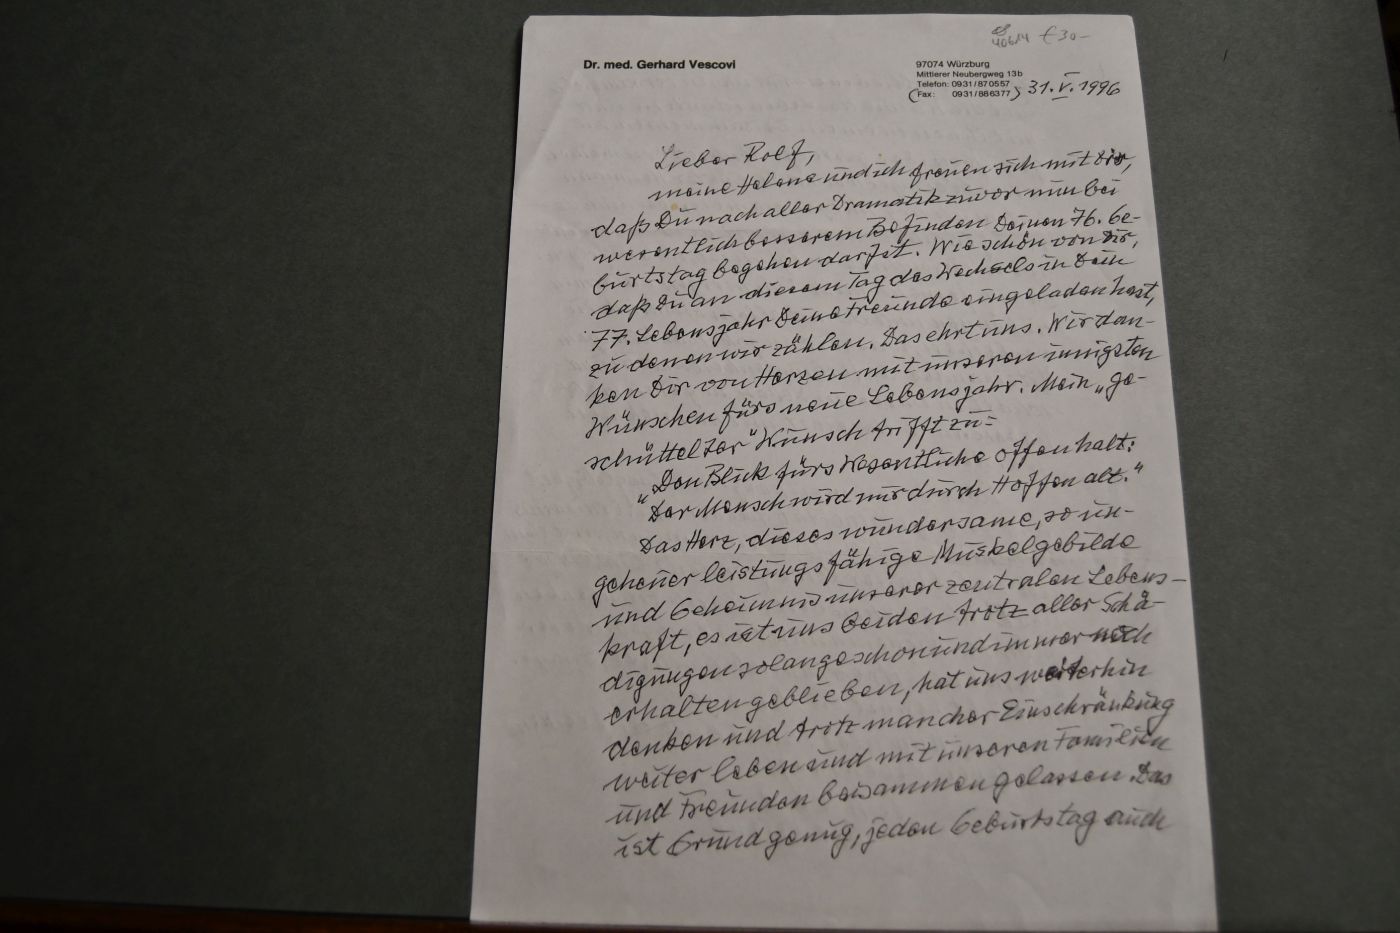 40614 € 30-
Dr. med. Gerhard Vescovi
97074 Würzburg
Mittlerer Neubergweg 13b
Telefon: 0931/870557
(Fax: 0931/886377) 31.V.1996
Lieber Rolf,
meine Helene und ich freuen sich mit Dir,
daß Du nach aller Dramatik zuvor nun bei
wesentlich besserem Befinden Deinen 76. Ge-
burtstag begehen darfst. Wie schön von Dir,
daß Du an diesem Tag des Wechsels in Dein
77. Lebensjahr Deine Freunde eingeladen hast,
zu denen wir zählen. Das ehrt uns. Wir dan-
ken Dir von Herzen mit unseren innigsten
Wünschen fürs neue Lebensjahr. Mein „ge-
schüttelter“ Wunsch trifft zu:
„Den Blick fürs Wesentliche offen halt:
Der Mensch wird nur durch Hoffen alt.“
Das Herz, dieses wundersame, so un-
geheuer leistungsfähige Muskelgebilde
und Geheimnis unserer zentralen Lebens-
kraft, es ist uns beiden trotz aller Schä-
digungen solange schon und immer noch
erhalten geblieben, hat uns weiterhin
denken und trotz mancher Einschränkung
weiter leben und mit unseren Familien
und Freunden beisammen gelassen. Das
ist Grund genug, jeden Geburtstag auch